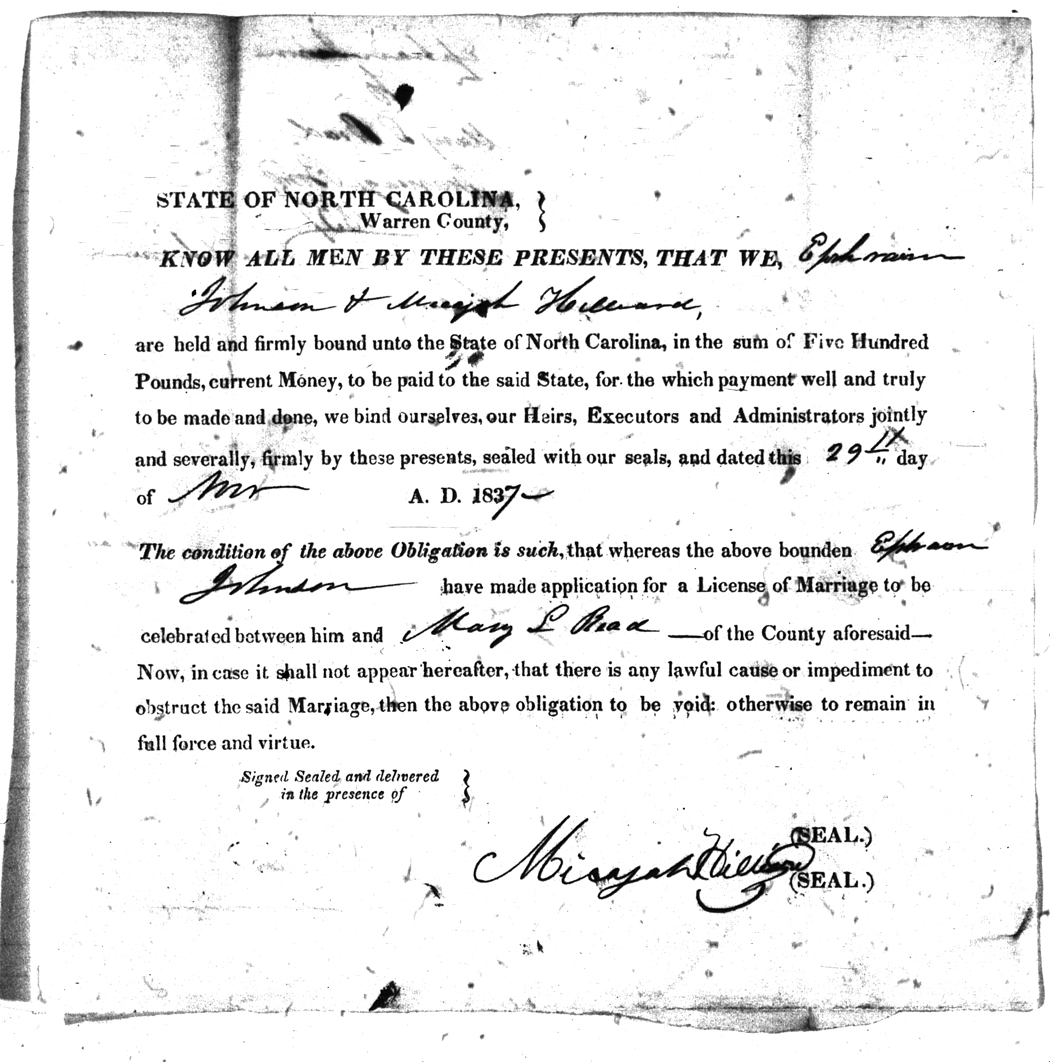 STATE OF NORTH CAROLINA,
Warren County,
KNOW ALL MEN BY THESE PRESENTS, THAT WE, Ephraim
Johnson & Micajah Hilliard,
are held and firmly bound unto the State of North Carolina, in the sum of Five Hundred
Pounds, current Money, to be paid to the said State, for the which payment well and truly
to be made and done, we bind ourselves, our Heirs, Executors and Administrators jointly
and severally, firmly by these presents, sealed with our seals, and dated this 29th day
of Nov A. D. 1837
The condition of the above Obligation is such, that whereas the above bounden Ephraim
Johnson have made application for a License of Marriage to be
celebrated between him and Mary L Read —of the County aforesaid—
Now, in case it shall not appear hereafter, that there is any lawful cause or impediment to
obstruct the said Marriage, then the above obligation to be void: otherwise to remain in
full force and virtue.
Signed Sealed and delivered
in the presence of
(SEAL.)
Micajah Hilliard (SEAL.)